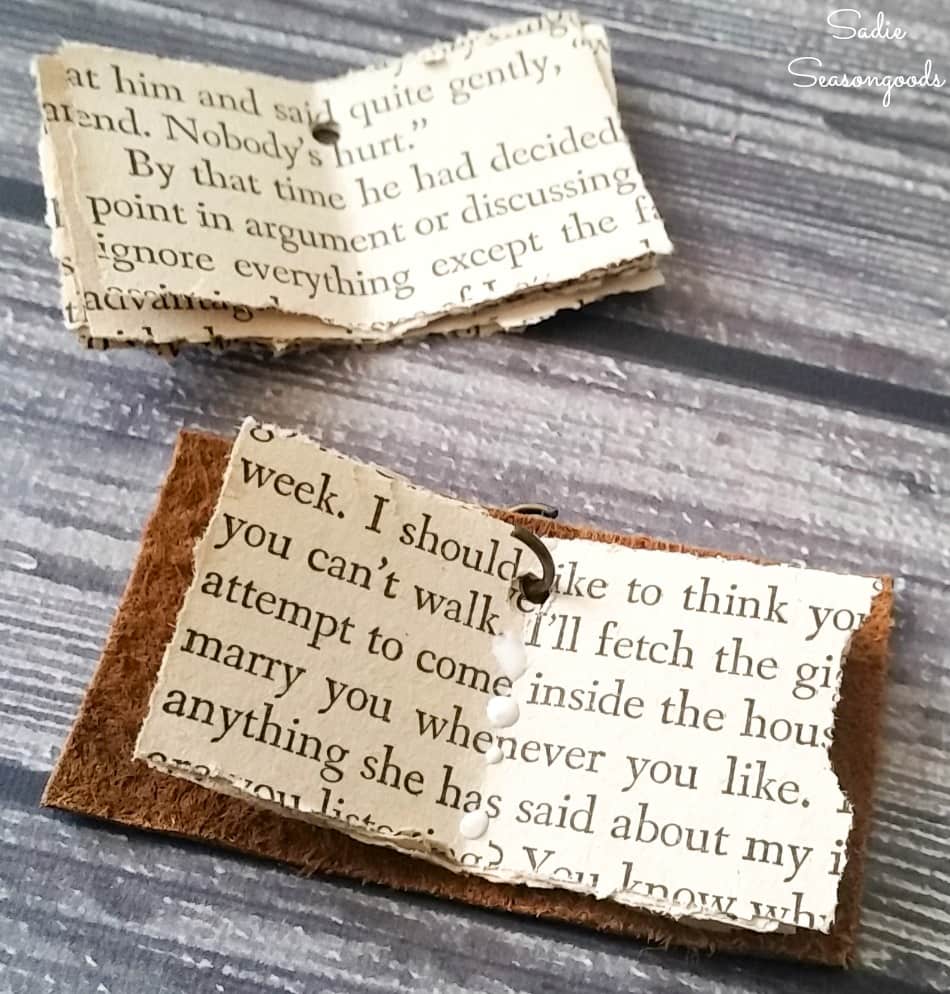 Sadie
Seasongoods
at him and said quite gently,
end. Nobody's hurt."
By that time he had decided
point in argument or discussing
ignore everything except the
week. I should like to think you
you can't walk. I'll fetch the
attempt to come inside the hous
marry you whenever you like.
anything she has said about my
you listening? You know why